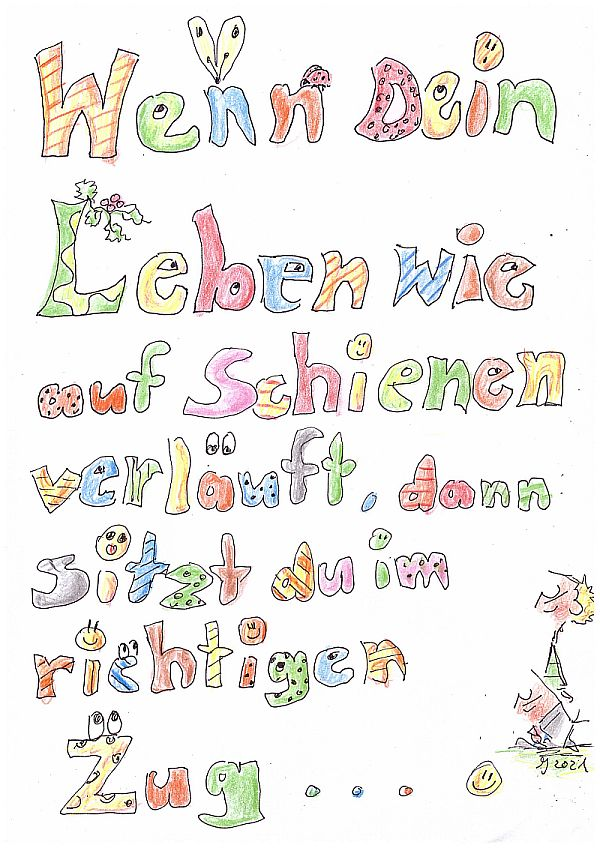 Wenn Dein
Leben wie
auf Schienen
verläuft, dann
sitzt du im
richtigen
Zug . . .
2021